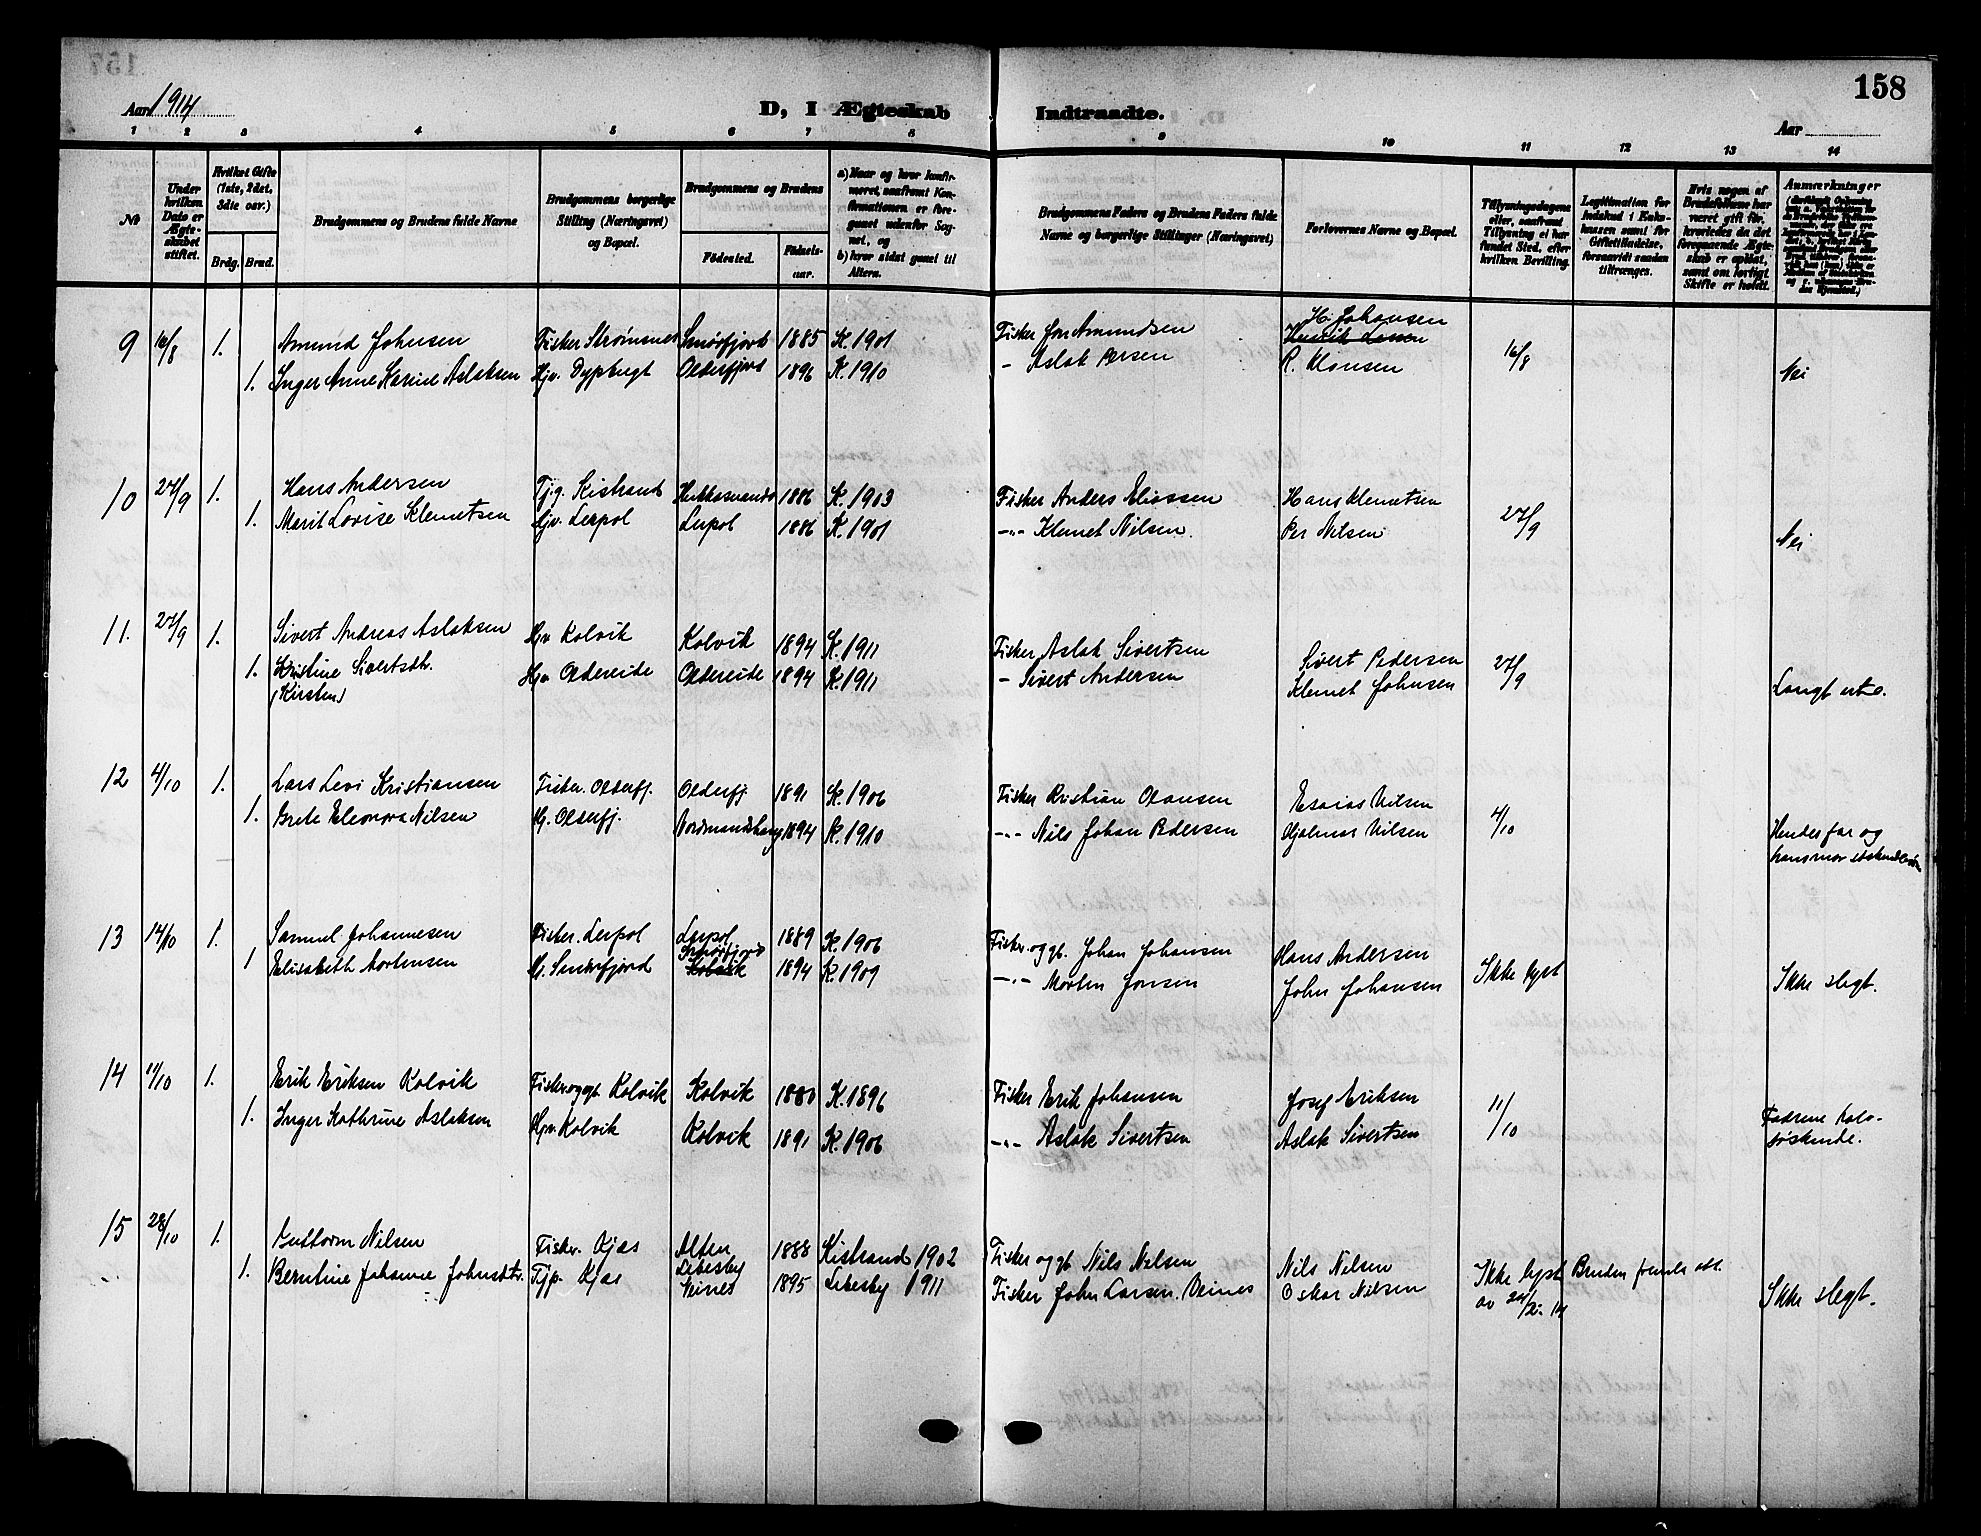 158
Aar 1914
D, I Ægteskab Indtraadte.
Aar
1 2 3 4 5 6 7 8 9 10 11 12 13 14
No
Under hvilken Dato er Ægteskabet stiftet.
Hvilket Gifte (1ste, 2det, 3die osv.)
Brdg. Brud.
Brudgommens og Brudens fulde Navne
Brudgommens borgerlige Stilling (Næringsvei) og Bopæl.
Brudgommens og Brudens
Fødested. Fødselsaar.
a) Naar og hvor konfirmeret, saafremt Konfirmationen er foregaaet udenfor Sognet, og
b) hvor sidst gaaet til Alters.
Brudgommens Faders og Brudens Faders fulde Navne og borgerlige Stillinger (Næringsvei)
Forlovernes Navne og Bopæl.
Tillysningsdagene eller, saafremt Tillysning ei har fundet Sted, efter hvilken Bevilling.
Legitimation for Indskud i Enkekassen samt for Giftetilladelse, forsaavidt saadan tiltrænges.
Hvis nogen af Brudefolkene har været gift før, hvorledes da det foregaaende Ægteskab er opløst, samt om lovligt Skifte er holdt.
Anmærkninger
9 16/8 1. Amund Johnsen Fisker Strømsnes Smørfjord 1885 K. 1901 Fisker Jon Amundsen H. Johansen 16/8
Henrik Lassen
1. Inger Anne Karine Aslaksen Hjv. Dypbugt Olderfjord 1896 K. 1910 - Aslak Persen R. Klausen Nei
10 27/9 1. Hans Andersen Tj.g. Kistrand 1886 K. 1903 Fisker Anders Eliassen Hans Klemetsen 27/9
1. Marit Lovise Klemetsen Hjv. Lerpol Lerpol 1886 K. 1901 -"- Klemet Nilsen. Per Nilsen Nei
11. 27/9 1. Sivert Andreas Aslaksen Hjv Kolvik Kolvik 1894 K. 1911 Fisker Aslak Sivertsen Sivert Pedersen 27/9
1. Kristine Sivertsdt. Hjv Oldereide Oldereide 1894 K. 1911 - Sivert Andersen Klemet Johnsen Langt ute.
(Kirsten)
12 4/10 1. Lars Levi Kristiansen Fisker. Olderfj. Olderfj. 1891 K. 1906 Fisker Kristian Olausen Esaias Nilsen 4/10
1. Grete Eleonora Nilsen Hj. Olderfj. Nordmandshavn 1894 K. 1910 -"- Nils Johan Pedersen Hjalmar Nilsen Hendes far og
hans mor søskendebørn
13 14/10 1. Samuel Johannesen Fisker. Lerpol Lerpol 1889 K. 1906 Fisker og gb. Johan Johansen Hans Andersen Ikke lyst
Smørfjord
1 Elisabeth Mortensen Hj. Smørfjord Kolvik 1894 K. 1909 -"- Morten Jonsen John Johansen Ikke slegt.
14 11/10 1. Erik Eriksen Kolvik Fisker og gb. Kolvik Kolvik 1880 K. 1896 Fisker Erik Johansen Josef Eriksen 11/10
1. Inger Kathrine Aslaksen Hjv. Kolvik Kolvik 1891 K. 1906 -"- Aslak Sivertsen Aslak Sivertsen Fædrene halv-
søskende.
15 28/10 1. Guttorm Nilsen Fisker. Kjæs Alten 1888 Kistrand 1902 Fisker og gb. Nils Nilsen Nils Nilsen Ikke lyst Bruden
Lebesby
1. Berntine Johanne Johnsdt. Tjp. Kjæs Veines 1895 Lebesby 1911 Fisker John Larsen. Veines Oskar Nilsen Ikke slegt.